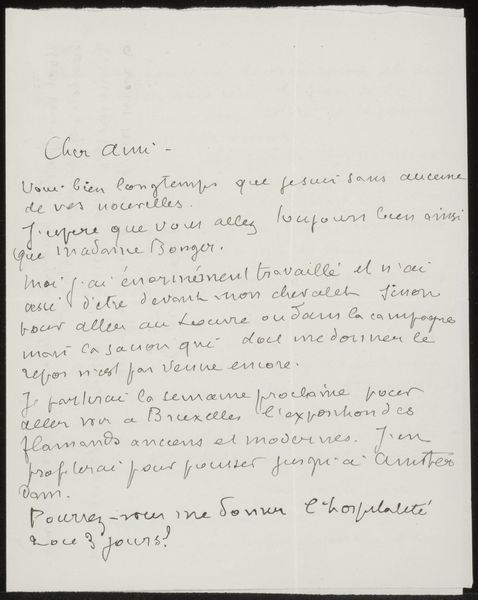 Cher ami -
Voici bien longtemps que je suis sans aucune
de vos nouvelles.
J'espère que vous allez toujours bien ainsi
que Madame Bonger.
Moi j'ai énormément travaillé et n'ai
cessé d'être devant mon chevalet sinon
pour aller au Louvre ou dans la campagne
mais la saison qui doit me donner le
repos n'est pas venue encore.
Je partirai la semaine prochaine pour
aller voir à Bruxelles l'exposition des
flamands anciens et modernes. J'en
profiterai pour pousser jusqu'à Amster
dam.
Pourrez-vous me donner l'hospitalité
2 ou 3 jours?